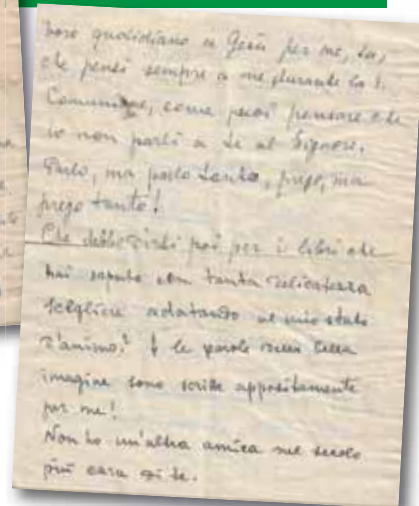 voro quotidiano a Gesù per me, tu,
che pensi sempre a me durante la S.
Comunione, come puoi pensare che
io non parli a te al Signore.
Parlo, ma parlo tanto, prego, ma
prego tanto!
Che debbo dirti poi per i libri che
hai saputo con tanta delicatezza
scegliere adatando al mio stato
d'animo? le parole bella
imagine sono scritte appositamente
per me!
Non ho un'altra amica nel secolo
più cara di te.